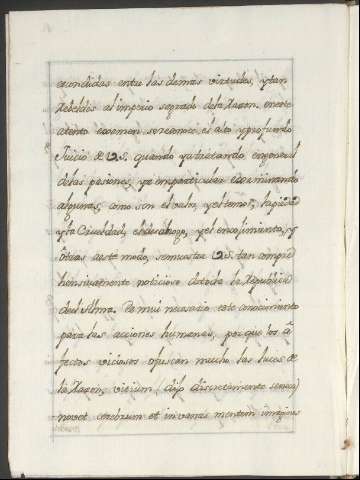 escondidas entre las demas virtudes, y tan
rebeldes al imperio sagrado de la Razon. en este
atento examen se reconoce el alto y profundo
Juicio de V.S. quando ya tratando en general
de las pasiones, ya en particular examinando
algunas, como son el valor, y el temor, la piedad
y la Crueldad, el desahogo, y el encogimiento, y
otras a este modo, se muestra V.S. tan compre
hensivamente noticioso de toda la Republica
del Alma. Es mui necesario este conocimiento
para las acciones humanas, porque los a
fectos viciosos ofuscan mucho las luces de
la Razon, vitium (dijo discretamente Seneca)
novet cerebrum et in varias mentem imagines